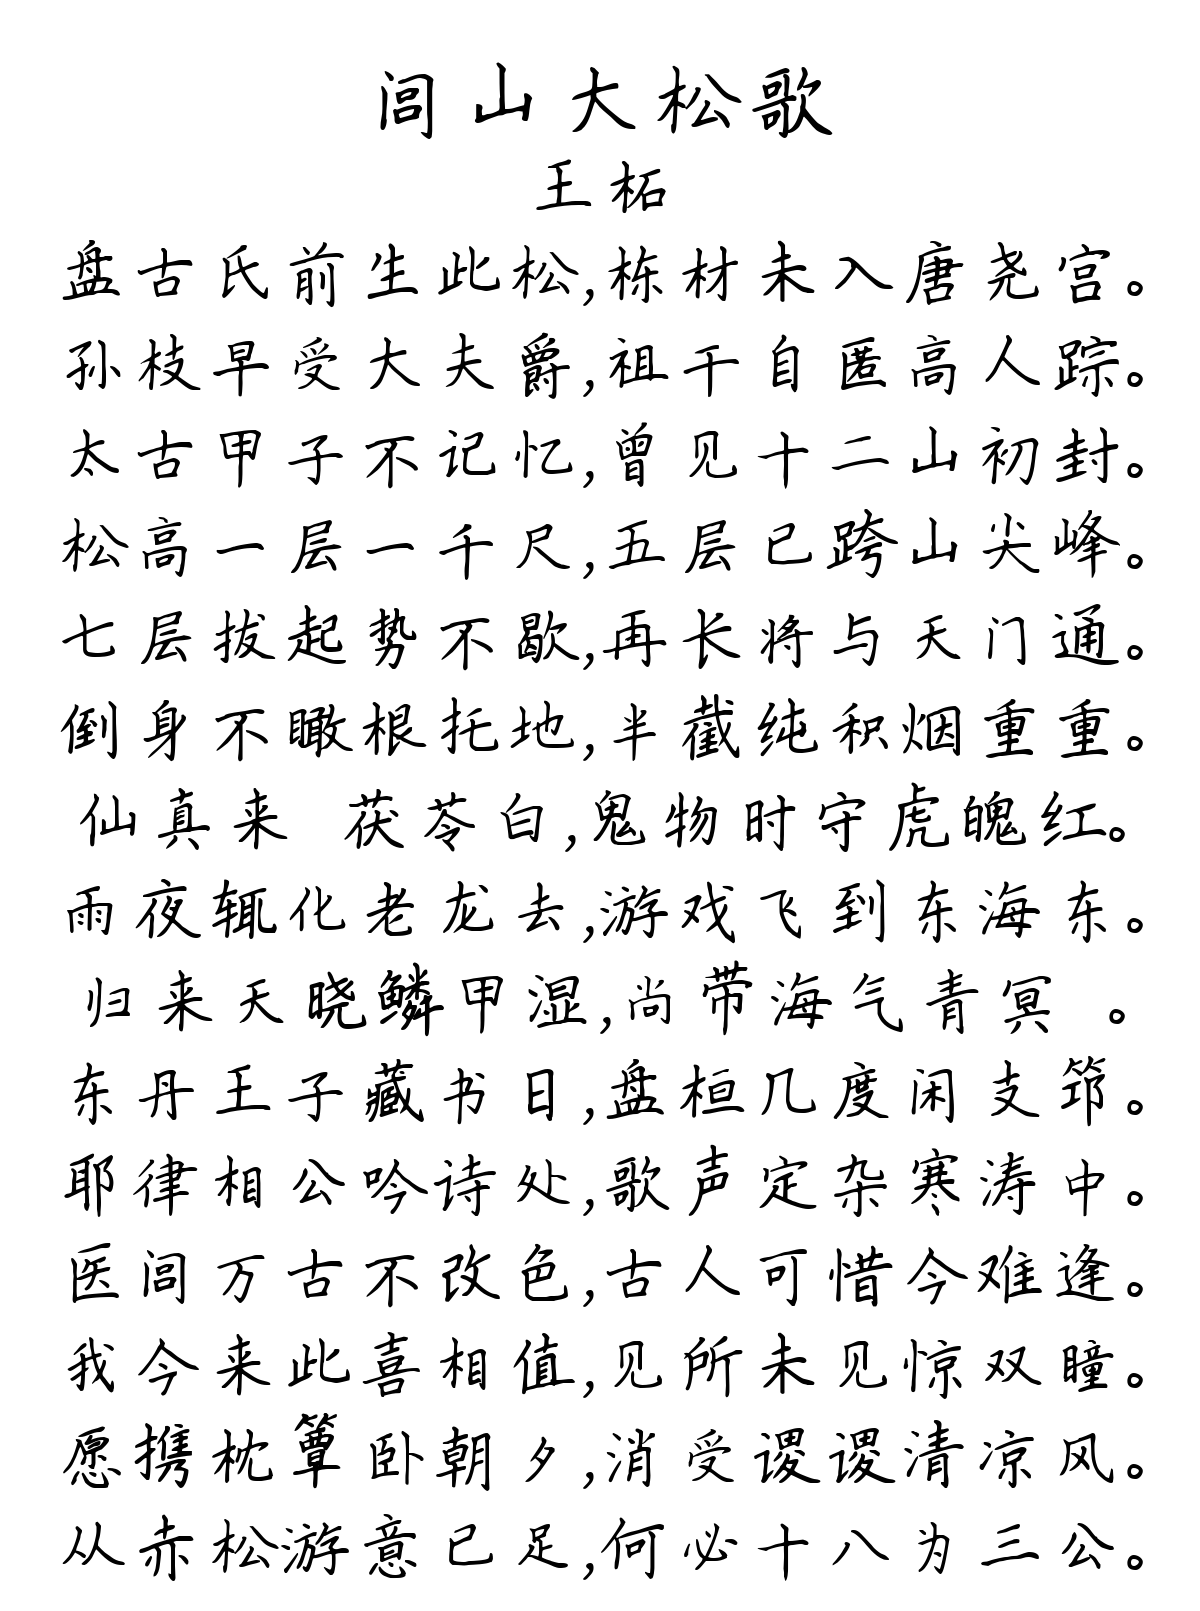 闾山大松歌
王柘
盘古氏前生此松,栋材未入唐尧宫。
孙枝早受大夫爵,祖干自匿高人踪。
太古甲子不记忆,曾见十二山初封。
松高一层一千尺,五层已跨山尖峰。
七层拔起势不歇,再长将与天门通。
倒身不瞰根托地,半截纯积烟重重。
仙真来 茯苓白,鬼物时守虎魄红。
雨夜辄化老龙去,游戏飞到东海东。
归来天晓鳞甲湿,尚带海气青冥 。
东丹王子藏书日,盘桓几度闲支筇。
耶律相公吟诗处,歌声定杂寒涛中。
医闾万古不改色,古人可惜今难逢。
我今来此喜相值,见所未见惊双瞳。
愿携枕簟卧朝夕,消受谡谡清凉风。
从赤松游意已足,何必十八为三公。